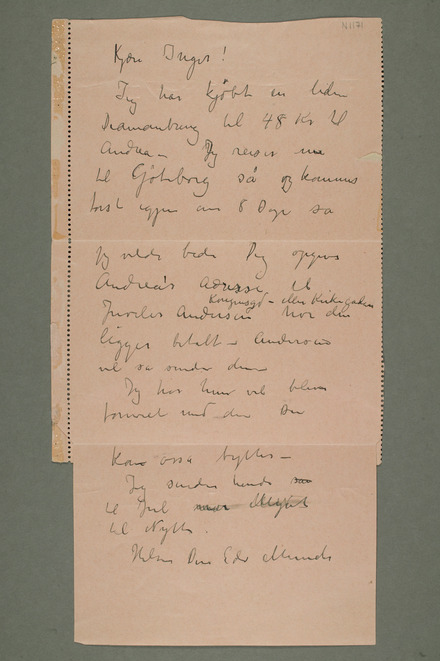 N 1571
Kjære Inger!
Jeg har kjöbt en liden
Diamantring til 48 Kr til
Andrea – Jeg reiser nu
til Göteborg så jeg kommer
først igjen om 8 Dage så
jeg vilde bede Dig opgive
Andrea's adresse til
Kongensgd – eller Kirkegaden
Juveler Andersen hvor den
ligger betalt – Andersen
vil så sende den
Jeg tror hun vil blive
fornøiet med den
Kan også byttes –
Jeg sender hende
til Jul
til Nytte.
Hilsen Din Edv Munch